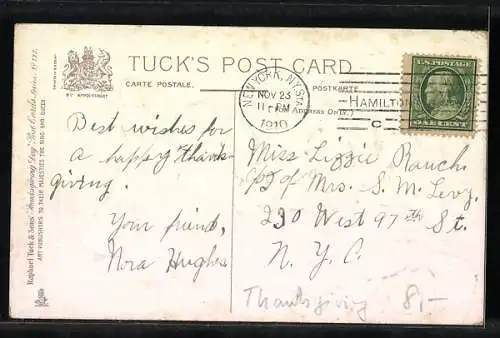 TUCK'S POST CARD
CARTE POSTALE.
POSTKARTE.
(FOR ADDRESS ONLY.)
BY APPOINTMENT
Raphael Tuck & Sons' "Thanksgiving Day" Post Cards Series
ART PUBLISHERS TO THEIR MAJESTIES THE KING AND QUEEN.
NEW YORK, N.Y. STA
NOV 23
11-PM
1910
HAMILTON
U.S. POSTAGE
ONE CENT
Best wishes for
a happy thanks-
giving.
Your friend,
Nora Hughes
Miss Lizzie Rauch
of Mrs. S. M. Levy.
230 West 97th St.
N. Y. C.
Thanksgiving 8,-